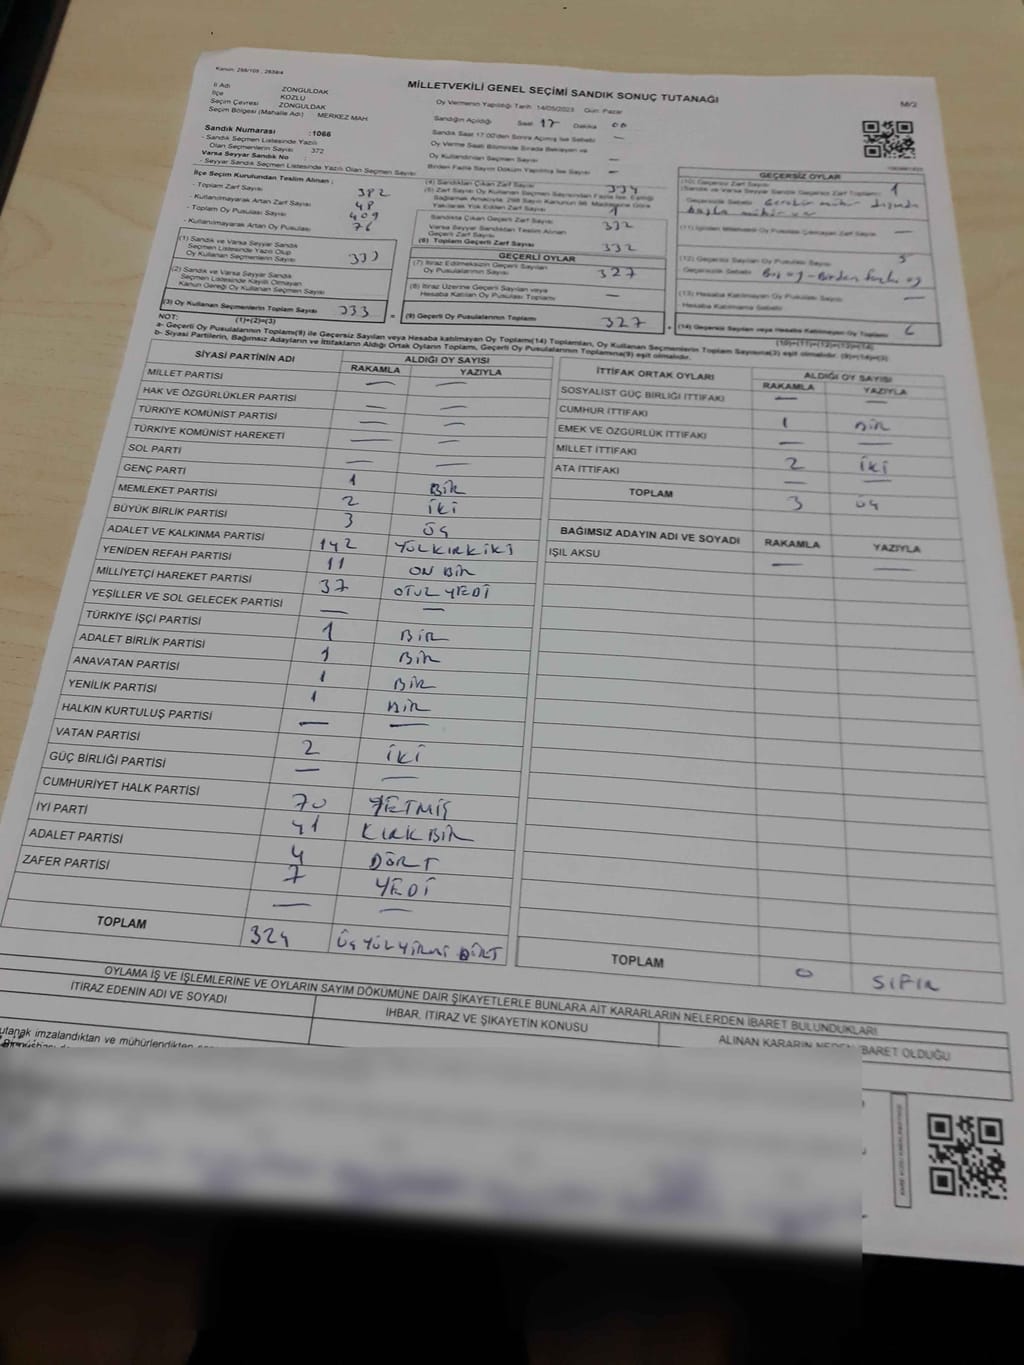 Kanun: 298/105 , 2839/4
MİLLETVEKİLİ GENEL SEÇİMİ SANDIK SONUÇ TUTANAĞI
M/2
İl Adı ZONGULDAK
İlçe KOZLU
Seçim Çevresi ZONGULDAK
Seçim Bölgesi (Mahalle Adı) MERKEZ MAH
Sandık Numarası :1066
- Sandık Seçmen Listesinde Yazılı
Olan Seçmenlerin Sayısı 372
Varsa Seyyar Sandık No
- Seyyar Sandık Seçmen Listesinde Yazılı Olan Seçmen Sayısı
Oy Vermenin Yapıldığı Tarih 14/05/2023 Gün: Pazar
Sandığın Açıldığı Saat 17 Dakika 00
Sandık Saat 17:00'den Sonra Açılmış İse Sebebi —
Oy Verme Saati Bitiminde Sırada Bekleyen ve
Oy Kullandırılan Seçmen Sayısı —
Birden Fazla Sayım Döküm Yapılmış İse Sayısı —
İlçe Seçim Kurulundan Teslim Alınan :
- Toplam Zarf Sayısı 382
- Kullanılmayarak Artan Zarf Sayısı 48
- Toplam Oy Pusulası Sayısı 409
- Kullanılmayarak Artan Oy Pusulası 76
(1) Sandık ve Varsa Seyyar Sandık
Seçmen Listesinde Yazılı Olup
Oy Kullanan Seçmen Sayısı 333
(2) Sandık ve Varsa Seyyar Sandık
Seçmen Listesinde Kayıtlı Olmayan
Kanun Gereği Oy Kullanan Seçmen Sayısı
(3) Oy Kullanan Seçmenlerin Toplam Sayısı 333
(1)+(2)=(3)
(4) Sandıktan Çıkan Zarf Sayısı 334
(5) Zarf Sayısı Oy Kullanan Seçmen Sayısından Fazla İse, Eşitliği
Sağlamak Amacıyla, 298 Sayılı Kanunun 98. Maddesine Göre
Yakılarak Yok Edilen Zarf Sayısı 1
Sandıkta Çıkan Geçerli Zarf Sayısı 332
Varsa Seyyar Sandıktan Teslim Alınan
Geçerli Zarf Sayısı
(6) Toplam Geçerli Zarf Sayısı 332
GEÇERLİ OYLAR
(7) İtiraz Edilmeksizin Geçerli Sayılan
Oy Pusulalarının Sayısı 327
(8) İtiraz Üzerine Geçerli Sayılan veya
Hesaba Katılan Oy Pusulası Toplamı —
(9) Geçerli Oy Pusulalarının Toplamı 327
GEÇERSİZ OYLAR
(10) Geçersiz Zarf Sayısı
(Sandık ve Varsa Seyyar Sandık Geçersiz Zarf Toplamı) 1
Geçersizlik Sebebi Gerekli mühür dışında
başka mühür var
—
(12) Geçersiz Sayılan Oy Pusulası Sayısı 5
Geçersizlik Sebebi Boş oy - Birden fazla oy
(13) Hesaba Katılmayan Oy Pusulası Sayısı —
Hesaba Katılmama Sebebi
(14) Geçersiz Sayılan veya Hesaba Katılmayan Oy Toplamı 6
(10)+(11)+(12)+(13)=(14)
NOT:
a- Geçerli Oy Pusulalarının Toplamı(9) ile Geçersiz Sayılan veya Hesaba katılmayan Oy Toplamı(14) Toplamları, Oy Kullanan Seçmenlerin Toplam Sayısına(3) eşit olmalıdır. (9)+(14)=(3)
b- Siyasi Partilerin, Bağımsız Adayların ve İttifakların Aldığı Ortak Oyların Toplamı, Geçerli Oy Pusulalarının Toplamına(9) eşit olmalıdır.
SİYASİ PARTİNİN ADI ALDIĞI OY SAYISI
RAKAMLA YAZIYLA
MİLLET PARTİSİ — —
HAK VE ÖZGÜRLÜKLER PARTİSİ — —
TÜRKİYE KOMÜNİST PARTİSİ — —
TÜRKİYE KOMÜNİST HAREKETİ — —
SOL PARTİ — —
GENÇ PARTİ 1 BİR
MEMLEKET PARTİSİ 2 İKİ
BÜYÜK BİRLİK PARTİSİ 3 ÜÇ
ADALET VE KALKINMA PARTİSİ 142 YÜZKIRKİKİ
YENİDEN REFAH PARTİSİ 11 ON BİR
MİLLİYETÇİ HAREKET PARTİSİ 37 OTUZ YEDİ
YEŞİLLER VE SOL GELECEK PARTİSİ — —
TÜRKİYE İŞÇİ PARTİSİ 1 BİR
ADALET BİRLİK PARTİSİ 1 BİR
ANAVATAN PARTİSİ 1 BİR
YENİLİK PARTİSİ 1 BİR
HALKIN KURTULUŞ PARTİSİ — —
VATAN PARTİSİ 2 İKİ
GÜÇ BİRLİĞİ PARTİSİ — —
CUMHURİYET HALK PARTİSİ 70 YETMİŞ
İYİ PARTİ 41 KIRK BİR
ADALET PARTİSİ 4 DÖRT
ZAFER PARTİSİ 7 YEDİ
— —
TOPLAM 324 ÜÇ YÜZ YİRMİ DÖRT
İTTİFAK ORTAK OYLARI ALDIĞI OY SAYISI
RAKAMLA YAZIYLA
SOSYALİST GÜÇ BİRLİĞİ İTTİFAKI — —
CUMHUR İTTİFAKI 1 BİR
EMEK VE ÖZGÜRLÜK İTTİFAKI — —
MİLLET İTTİFAKI 2 İKİ
ATA İTTİFAKI — —
TOPLAM 3 ÜÇ
BAĞIMSIZ ADAYIN ADI VE SOYADI RAKAMLA YAZIYLA
IŞIL AKSU — —
TOPLAM 0 SIFIR
OYLAMA İŞ VE İŞLEMLERİNE VE OYLARIN SAYIM DÖKÜMÜNE DAİR ŞİKAYETLERLE BUNLARA AİT KARARLARIN NELERDEN İBARET BULUNDUKLARI
İTİRAZ EDENİN ADI VE SOYADI
İHBAR, İTİRAZ VE ŞİKAYETİN KONUSU
ALINAN KARARIN NEDEN İBARET OLDUĞU
utanak imzalandıktan ve mühürlendikten